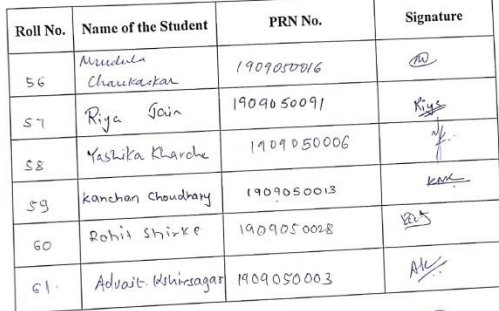 Roll No. Name of the Student PRN No. Signature
Mrudula
56 Chaukaskar 1909050016
57 Riya Jain 1909050091 Riya
58 Yashika Kharche 1909050006
59 Kanchan Choudhary 1909050013 KNK
60 Rohit Shirke 1909050028
61. Advait. Kshirsagar 1909050003 AK